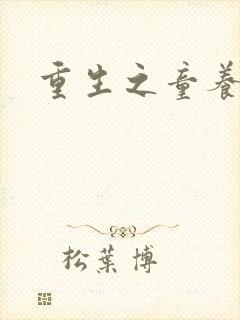 重生之童養
松葉博